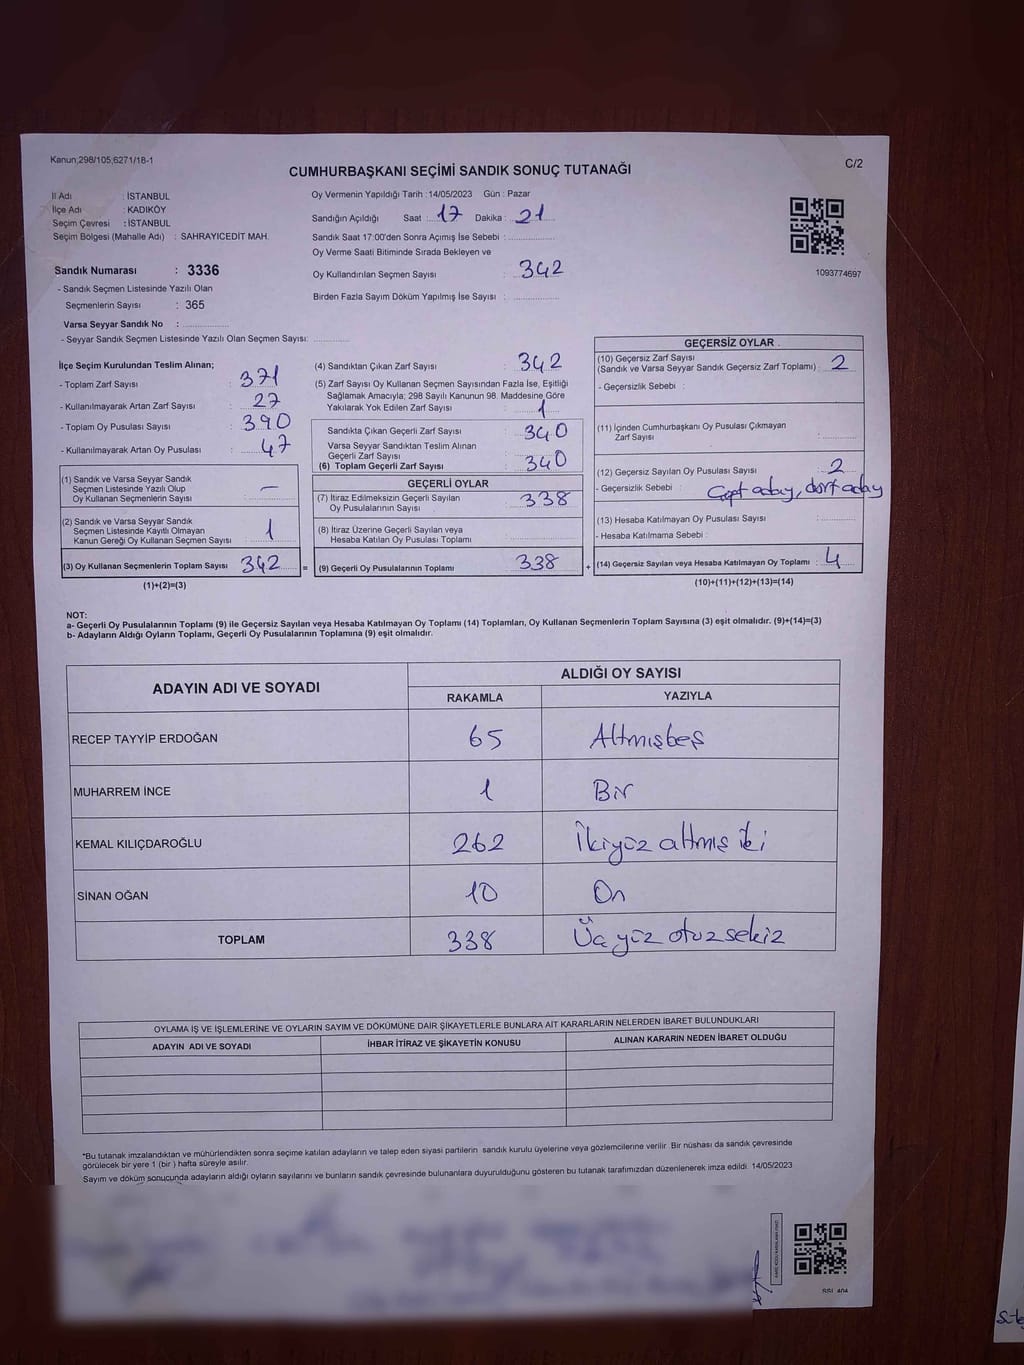 Kanun,298/105,6271/18-1
CUMHURBAŞKANI SEÇİMİ SANDIK SONUÇ TUTANAĞI
C/2
İl Adı : İSTANBUL
İlçe Adı : KADIKÖY
Seçim Çevresi : İSTANBUL
Seçim Bölgesi (Mahalle Adı) : SAHRAYICEDİT MAH.
Oy Vermenin Yapıldığı Tarih :14/05/2023 Gün : Pazar
Sandığın Açıldığı Saat : 17 Dakika : 21
Sandık Saat 17:00'den Sonra Açımış İse Sebebi :
Oy Verme Saati Bitiminde Sırada Bekleyen ve
Oy Kullandırılan Seçmen Sayısı : 342
Birden Fazla Sayım Döküm Yapılmış İse Sayısı :
1093774697
Sandık Numarası : 3336
- Sandık Seçmen Listesinde Yazılı Olan
Seçmenlerin Sayısı : 365
Varsa Seyyar Sandık No :
- Seyyar Sandık Seçmen Listesinde Yazılı Olan Seçmen Sayısı:
İlçe Seçim Kurulundan Teslim Alınan;
- Toplam Zarf Sayısı : 371
- Kullanılmayarak Artan Zarf Sayısı : 27
- Toplam Oy Pusulası Sayısı : 390
- Kullanılmayarak Artan Oy Pusulası : 47
(1) Sandık ve Varsa Seyyar Sandık
Seçmen Listesinde Yazılı Olup
Oy Kullanan Seçmenlerin Sayısı : —
(2) Sandık ve Varsa Seyyar Sandık
Seçmen Listesinde Kayıtlı Olmayan
Kanun Gereği Oy Kullanan Seçmen Sayısı : 1
(3) Oy Kullanan Seçmenlerin Toplam Sayısı : 342 =
(1)+(2)=(3)
(4) Sandıktan Çıkan Zarf Sayısı : 342
(5) Zarf Sayısı Oy Kullanan Seçmen Sayısından Fazla İse, Eşitliği
Sağlamak Amacıyla; 298 Sayılı Kanunun 98. Maddesine Göre
Yakılarak Yok Edilen Zarf Sayısı : 1
Sandıkta Çıkan Geçerli Zarf Sayısı : 340
Varsa Seyyar Sandıktan Teslim Alınan
Geçerli Zarf Sayısı :
(6) Toplam Geçerli Zarf Sayısı : 340
GEÇERLİ OYLAR
(7) İtiraz Edilmeksizin Geçerli Sayılan
Oy Pusulalarının Sayısı : 338
(8) İtiraz Üzerine Geçerli Sayılan veya
Hesaba Katılan Oy Pusulası Toplamı :
(9) Geçerli Oy Pusulalarının Toplamı : 338 +
GEÇERSİZ OYLAR
(10) Geçersiz Zarf Sayısı
(Sandık ve Varsa Seyyar Sandık Geçersiz Zarf Toplamı) : 2
- Geçersizlik Sebebi :
(11) İçinden Cumhurbaşkanı Oy Pusulası Çıkmayan
Zarf Sayısı :
(12) Geçersiz Sayılan Oy Pusulası Sayısı : 2
- Geçersizlik Sebebi : aday, dört aday
(13) Hesaba Katılmayan Oy Pusulası Sayısı :
- Hesaba Katılmama Sebebi :
(14) Geçersiz Sayılan veya Hesaba Katılmayan Oy Toplamı : 4
(10)+(11)+(12)+(13)=(14)
NOT:
a- Geçerli Oy Pusulalarının Toplamı (9) ile Geçersiz Sayılan veya Hesaba Katılmayan Oy Toplamı (14) Toplamları, Oy Kullanan Seçmenlerin Toplam Sayısına (3) eşit olmalıdır. (9)+(14)=(3)
b- Adayların Aldığı Oyların Toplamı, Geçerli Oy Pusulalarının Toplamına (9) eşit olmalıdır.
ADAYIN ADI VE SOYADI
ALDIĞI OY SAYISI
RAKAMLA YAZIYLA
RECEP TAYYİP ERDOĞAN 65 Altmışbeş
MUHARREM İNCE 1 Bir
KEMAL KILIÇDAROĞLU 262 İkiyüz altmış iki
SİNAN OĞAN 10 On
TOPLAM 338 Üç yüz otuz sekiz
OYLAMA İŞ VE İŞLEMLERİNE VE OYLARIN SAYIM VE DÖKÜMÜNE DAİR ŞİKAYETLERLE BUNLARA AİT KARARLARIN NELERDEN İBARET BULUNDUKLARI
ADAYIN ADI VE SOYADI İHBAR İTİRAZ VE ŞİKAYETİN KONUSU ALINAN KARARIN NEDEN İBARET OLDUĞU
*Bu tutanak imzalandıktan ve mühürlendikten sonra seçime katılan adayların ve talep eden siyasi partilerin sandık kurulu üyelerine veya gözlemcilerine verilir. Bir nüshası da sandık çevresinde
görülecek bir yere 1 (bir ) hafta süreyle asılır.
Sayım ve döküm sonucunda adayların aldığı oyların sayılarını ve bunların sandık çevresinde bulunanlara duyurulduğunu gösteren bu tutanak tarafımızdan düzenlenerek imza edildi. 14/05/2023